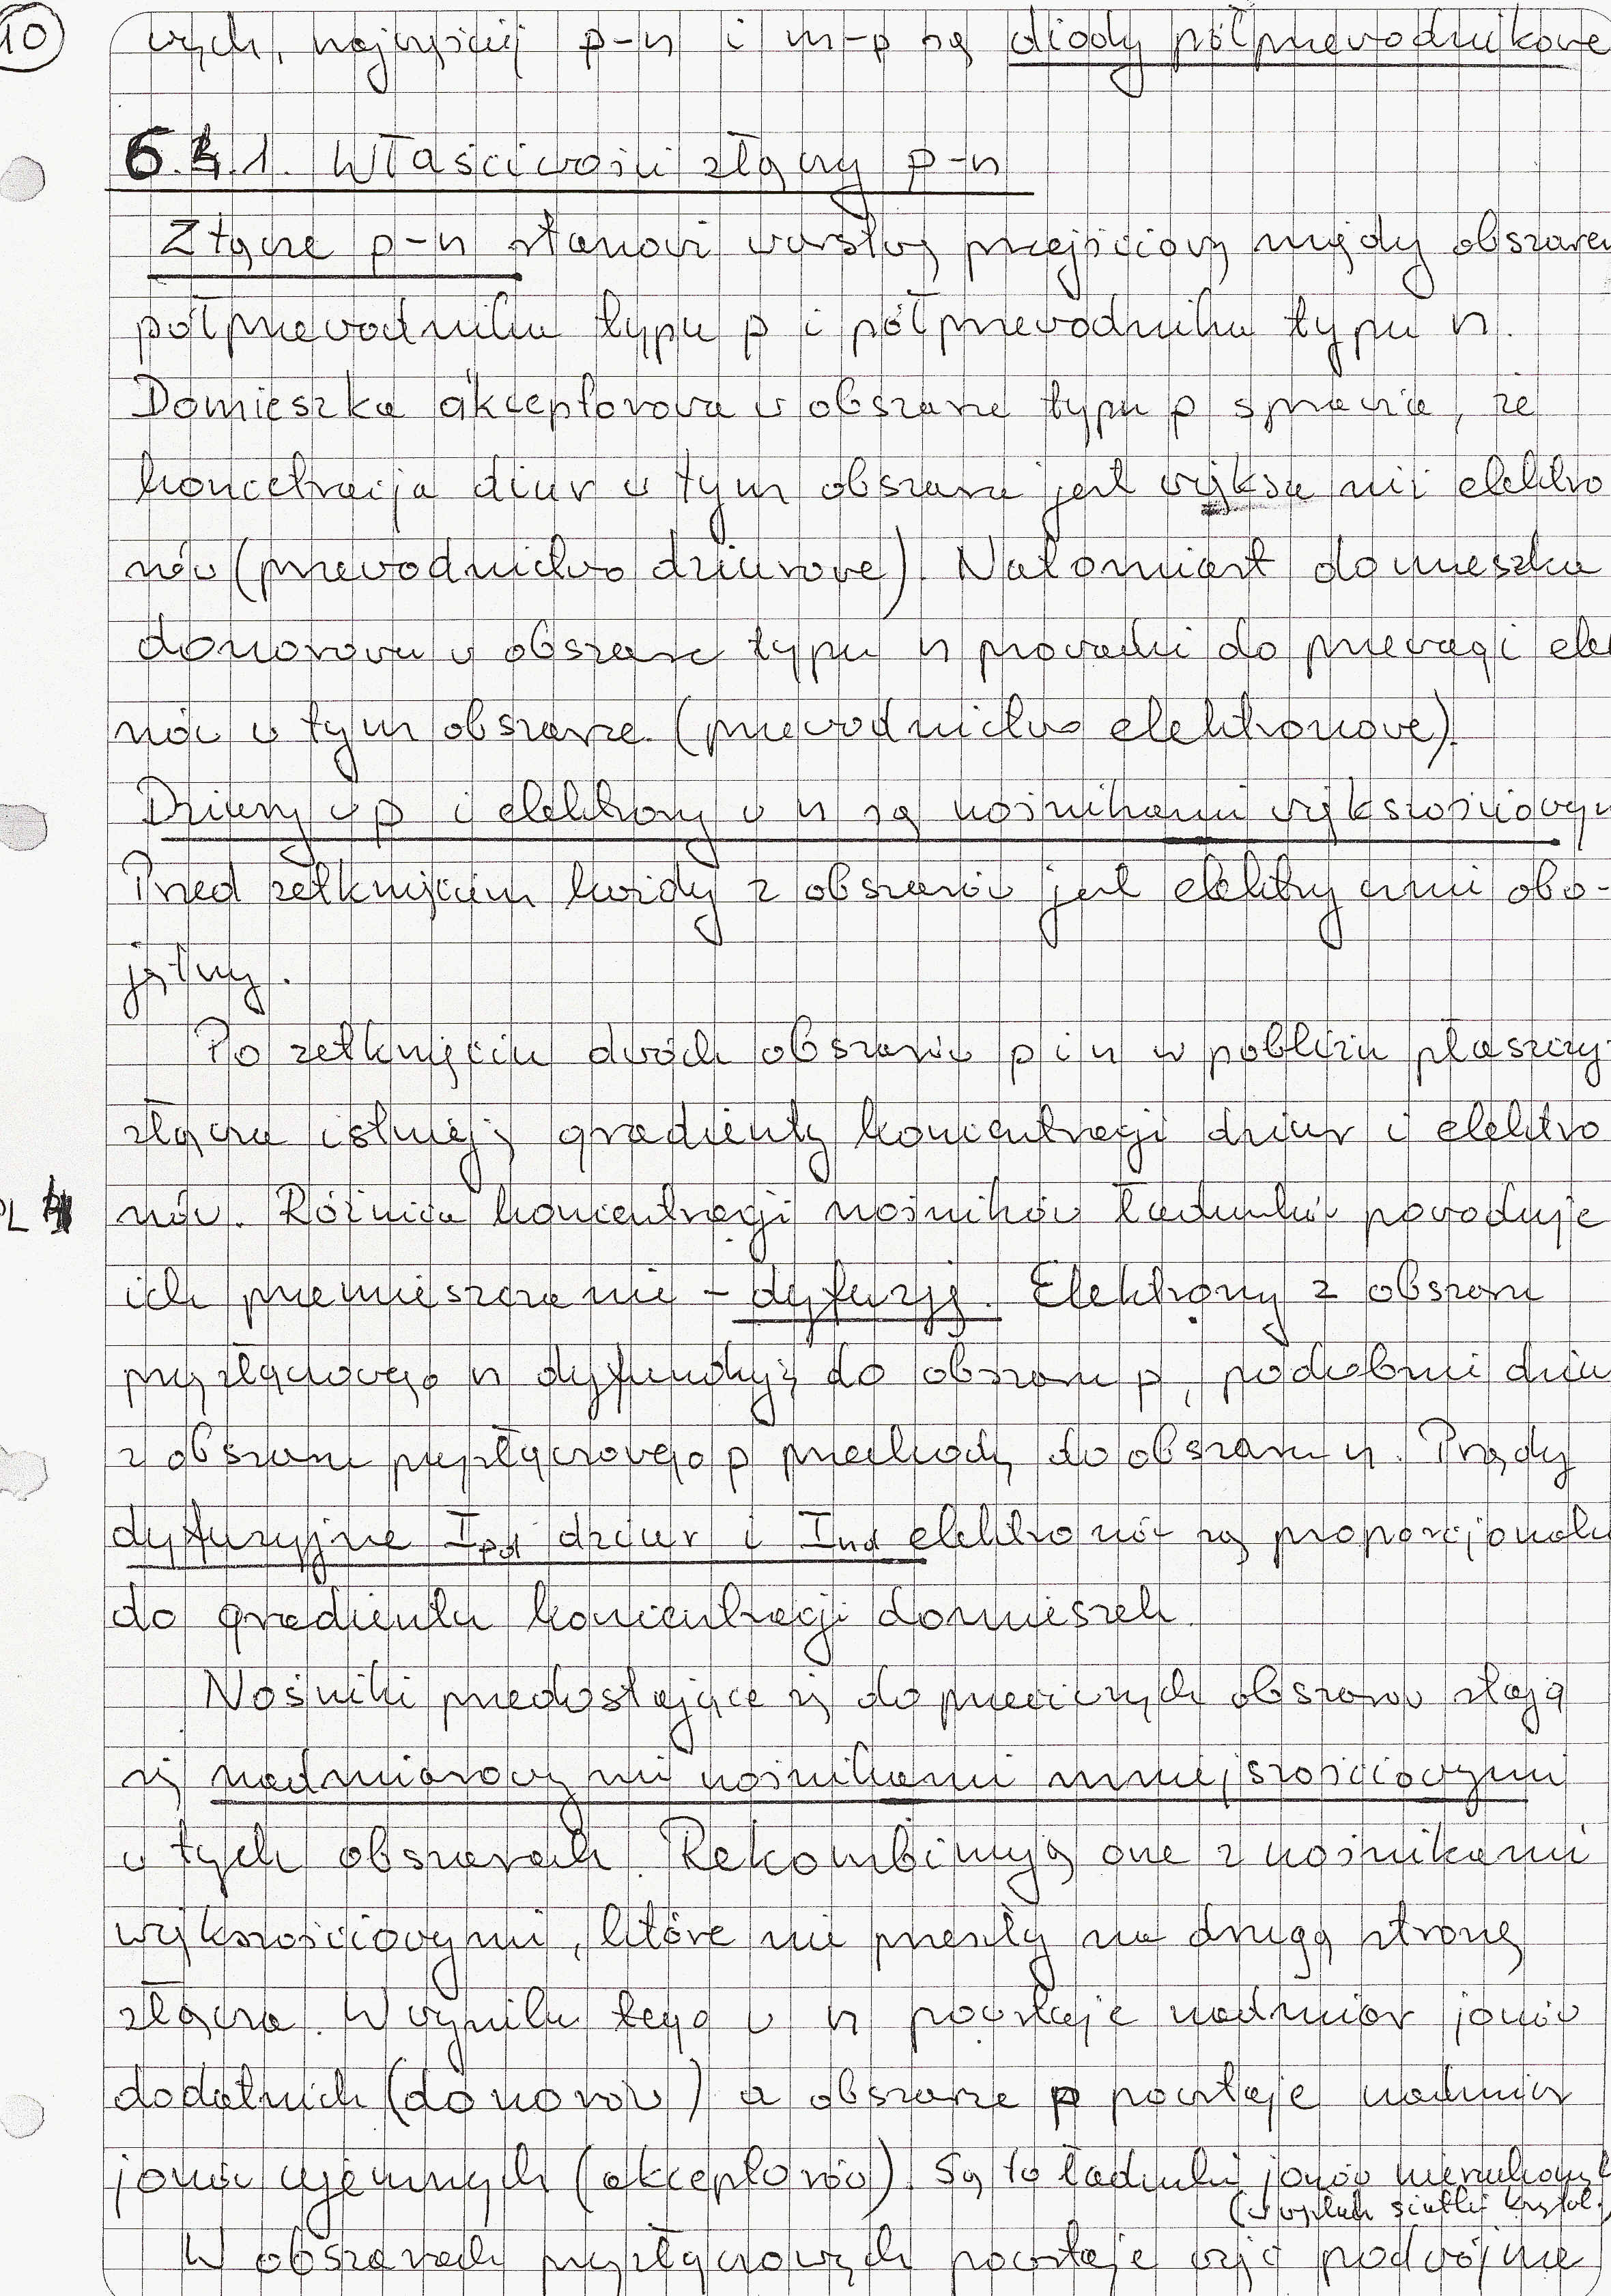 10
wych, najczęściej p-n i m-p są diody półprzewodnikowe
6.4.1. Właściwości złączy p-n
Złącze p-n stanowi warstwę przejściową między obszarem
półprzewodnika typu p i półprzewodnika typu n.
Domieszka akceptorowa w obszarze typu p sprawia, że
koncetracja dziur w tym obszarze jest większa niż elektro
nów (przewodnictwo dziurowe). Natomiast domieszka
donorowa w obszarze typu n prowadzi do przewagi ele
nów w tym obszarze. (przewodnictwo elektronowe).
Dziury w p i elektrony w n są nośnikami większościowym
Przed zetknięciem każdy z obszarów jest elektrycznie obo-
jętny.
Po zetknięciu dwóch obszarów p i n w pobliżu płaszczy
złącza istnieją gradienty koncentracji dziur i elektro
nów. Różnica koncentracji nośników ładunków powoduje
ich przemieszczanie - dyfuzję. Elektrony z obszaru
przyzłączowego n dyfundują do obszaru p, podobnie dziu
z obszaru przyzłączowego p przechodzą do obszaru n. Prądy
dyfuzyjne Ipd dziur i Ind elektronów są proporcjonaln
do gradientu koncentracji domieszek.
Nośniki przedostające się do przeciwnych obszarów stają
się nadmiarowymi nośnikami mniejszościowymi
w tych obszarach. Rekombinują one z nośnikami
większościowymi, które nie przeszły na drugą stronę
złącza. W wyniku tego w n powstaje nadmiar jonów
dodatnich (donorów) a obszarze p powstaje nadmiar
jonów ujemnych (akceptorów). Są to ładunki jonów nieruchomych
(w węzłach siatki krystal.)
W obszarach przyzłączowych powstaje więc podwójna